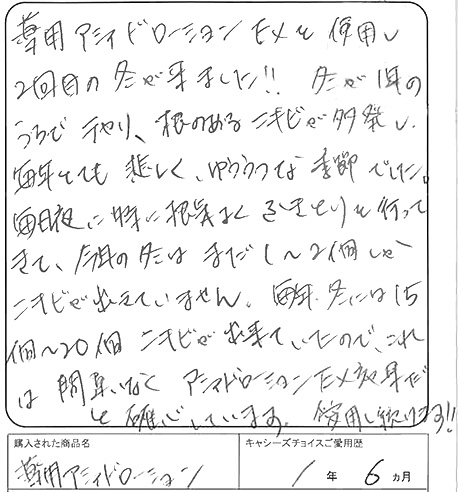 薬用アシィドローションEXを使用し
2回目の冬が来ました!! 冬が1年の
うちで 一番、根のある ニキビが多発し、
毎年とても 悲しく、ゆううつな 季節 でした。
毎日夜に特に根気よく ふきとりを行って
きて、今年の冬は まだ 1〜2個しか
ニキビが出来ていません。毎年、冬には15
個〜20個 ニキビが 出来ていたので、これ
は 間違いなく アシィドローションEX効果だ
と 確信しています。愛用し続けます!!
購入された商品名
薬用アシィドローション
キャシーズチョイスご愛用歴
1年6ヵ月